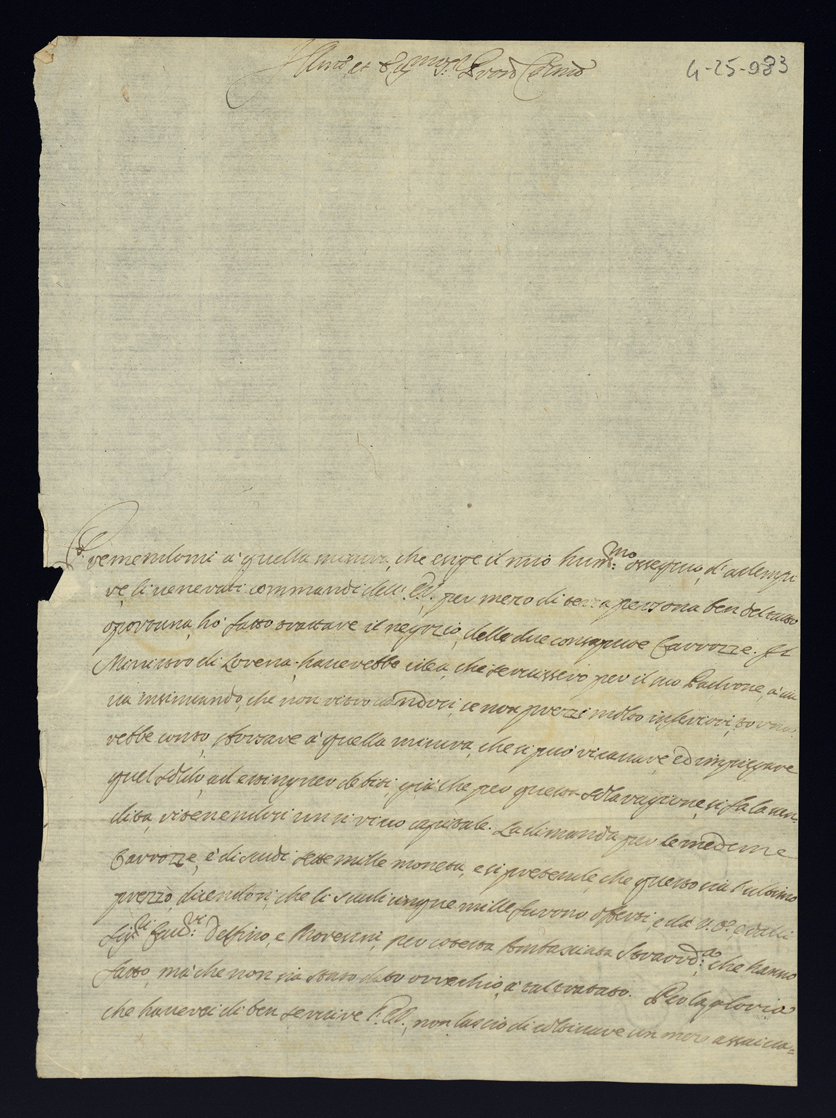 Illmo et Eccmo Sigr Prõn Colmo
4-25-983
Premendomi à quella misura, che exige il mio hummo: ossequio, d'adempi
re, li venerati commandi dell' E.V., per mezo di terza persona ben del caso
oportuna, hò fatto trattare il negozio, delle due consapute Carrozze. Il
Ministro di Lorena, haverebbe idea, che servissero per il suo Padrone, à un
via insinuando, che non vi si trovando, se non prezzi molto inferiori,
rebbe conto, stossare à quella misura, che si può ricavare ed impiegare
quel soldo, ad estinguer debiti, già che per questa sola ragione, si fa la ven-
dita, ritenendosi un sì vivo capitale. La dimanda per le medeme
Carrozze, è di scudi sette mille moneta, e si pretende, che questo sia l'ultimo
prezzo dicendosi, che li scudi cinque mille furono offerti, e da V.E. e dalli
Sigri Caval: Delfino, e Moresini, per cotesta Ambasciata Straordria: che hanno
fatto, mà che non sia stato dato orecchio, à tal trattato. Per la gloria
che haverei di ben servire V.E., non lascio di coltivare un mezo assai va-